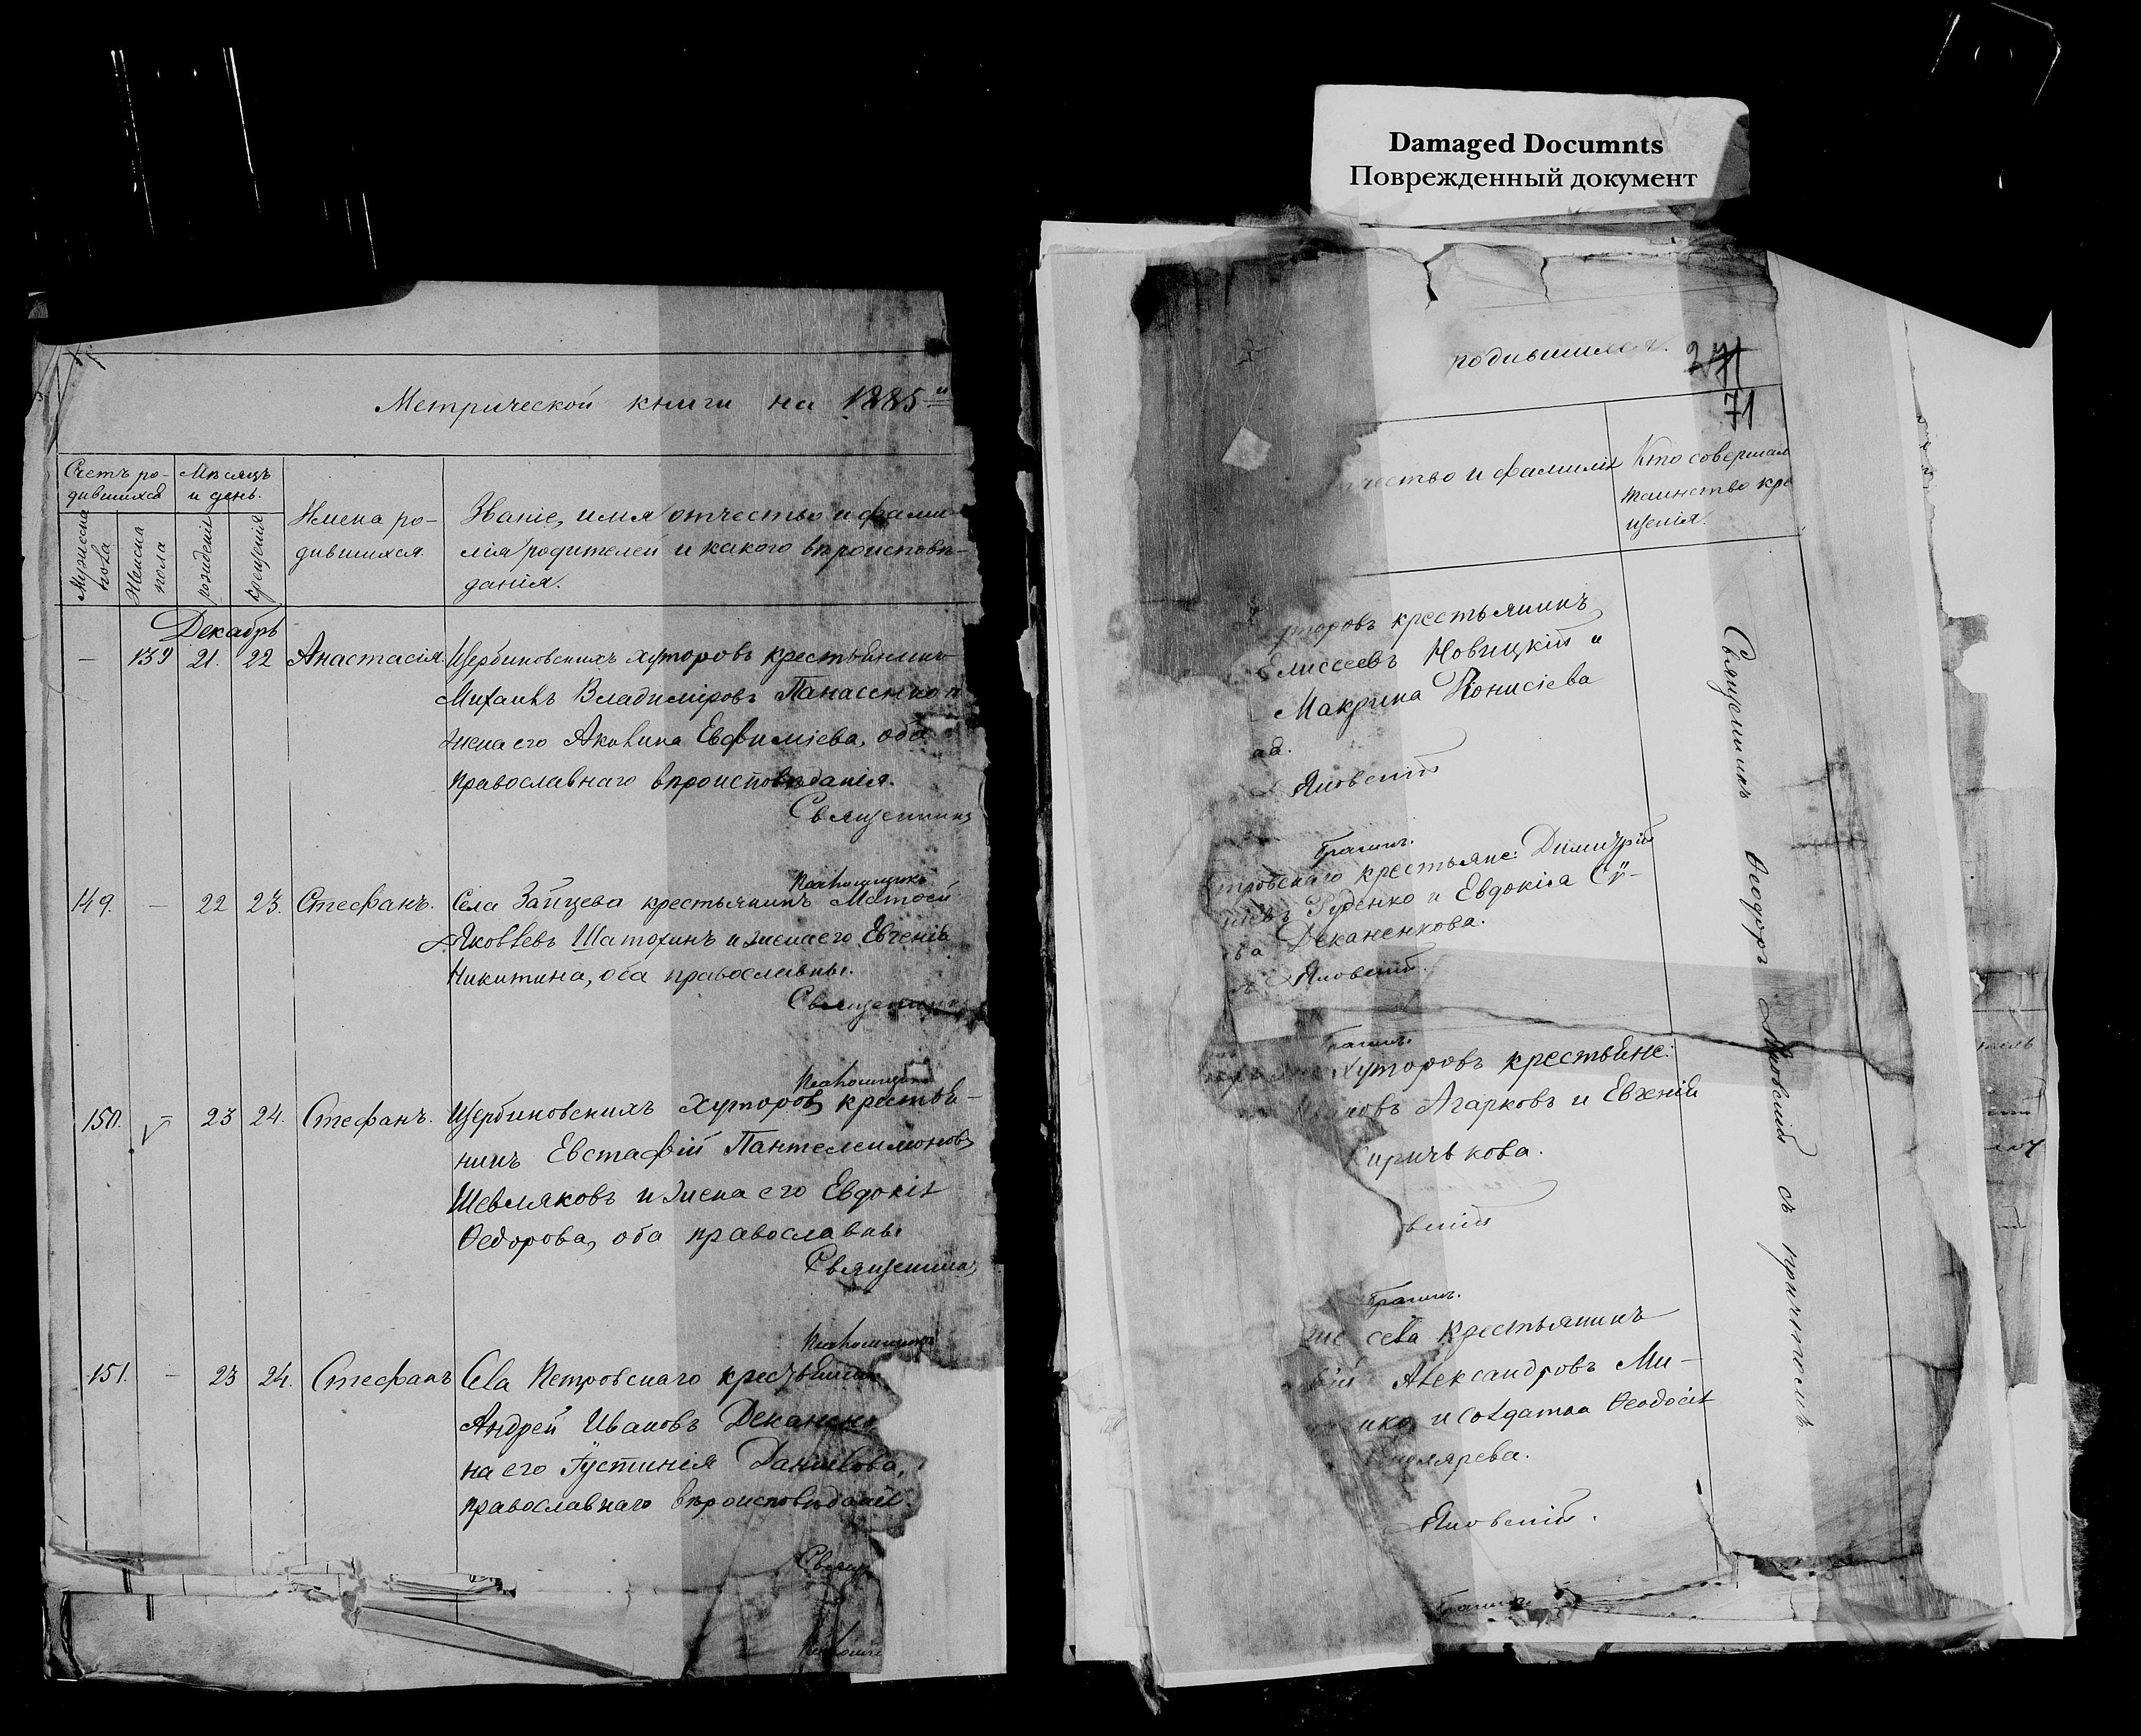 Damaged Documnts
Поврежденный документ
Метрической книги на 1885
Счетъ ро-
дившихся
Мѣсяцъ
и день.
Мужеска
пола
Женска
пола
рожденія
крещенія
Имена ро-
дившихся.
Званіе, имя отчество и фами-
лія родителей и какого вѣроисповѣ-
данія.
Декабрь
— 139 21. 22 Анастасія Щербиновскихъ хуторовъ крестьянинъ
Михаилъ Владиміровъ Панасенко и
жена его Акилина Евфиміева, оба
православнаго вѣроисповѣданія.
Священникъ
149. — 22 23. Стефанъ. Села Зайцева крестьянинъ
Яковлевъ Шатохинъ и жена его Евгенія
Никитина, оба православны.
Священникъ
150. 23 24. Стефанъ. Щербиновскихъ хуторовъ крестья-
нинъ Евстафій Пантелеимоновъ
Шевляковъ и жена его Евдокія
Ѳедорова, оба православны
Священникъ
151. — 23 24. Стефанъ Села Петровскаго крестьянинъ
Андрей Ивановъ
на его Іустинія Даниилова,
православнаго вѣроисповѣданія.
Свящ
родившихся.
271
71
чество и фамилія
Кто совершал
таинство кре
щенія.
торовъ крестьянинъ
Елисеевъ Новицкій и
Макрина Діонисіева
ад.
Яновскій
тровскаго крестьяне: Димитрій
Руденко и Евдокія Су-
ва Деканенкова.
Яновскій.
Хуторовъ крестьяне:
новъ Агарковъ и Евгенія
Киричькова.
вскій
сева крестьянинъ
Александровъ Ми-
нко, и солдатка Ѳеодосія
лярева.
Яновскій.
Священникъ Ѳеодоръ Яновскій съ причтомъ